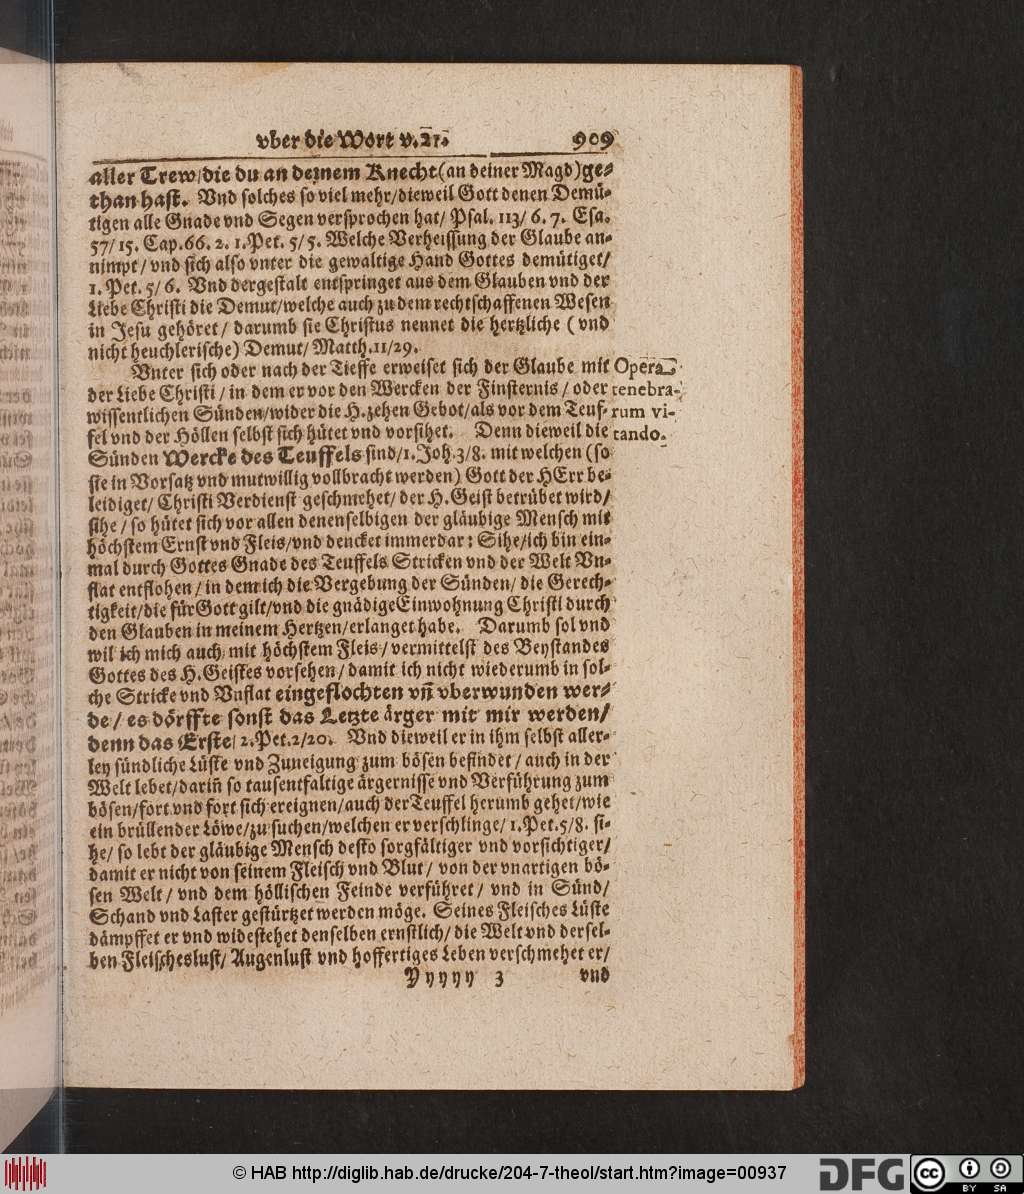 vber die Wort v. 21. 909
aller Trew/die du an deinem Knecht(an deiner Magd)ge-
than hast. Vnd solches so viel mehr/dieweil Gott denen Demü-
tigen alle Gnade vnd Segen versprochen hat/ Psal. 113/ 6. 7. Esa.
57/ 15. Cap. 66. 2. 1. Pet. 5/ 5. Welche Verheissung der Glaube an-
nimpt/ vnd sich also vnter die gewaltige Hand Gottes demütiget/
1. Pet. 5/ 6. Vnd dergestalt entspringet aus dem Glauben vnd der
Liebe Christi die Demut/welche auch zu dem rechtschaffenen Wesen
in Jesu gehöret/ darumb sie Christus nennet die hertzliche (vnd
nicht heuchlerische) Demut/ Matth. 11/29.
Vnter sich oder nach der Tieffe erweiset sich der Glaube mit
der Liebe Christi/ in dem er vor den Wercken der Finsternis/ oder
wissentlichen Sünden/wider die H. zehen Gebot/als vor dem Teuf-
fel vnd der Höllen selbst sich hütet vnd vorsihet. Denn dieweil die
Opera
tenebra-
rum vi-
tando.
Sünden Wercke des Teuffels sind/1. Joh. 3/8. mit welchen (so
sie in Vorsatz vnd mutwillig vollbracht werden) Gott der HErr be-
leidiget/ Christi Verdienst geschmehet/ der H. Geist betrübet wird/
sihe/ so hütet sich vor allen denenselbigen der gläubige Mensch mit
höchstem Ernst vnd Fleis/vnd dencket immerdar: Sihe/ich bin ein-
mal durch Gottes Gnade des Teuffels Stricken vnd der Welt Vn-
flat entflohen/ in dem ich die Vergebung der Sünden/ die Gerech-
tigkeit/die für Gott gilt/vnd die gnädige Einwohnung Christi durch
den Glauben in meinem Hertzen/erlanget habe. Darumb sol vnd
wil ich mich auch mit höchstem Fleis/ vermittelst des Beystandes
Gottes des H. Geistes vorsehen/ damit ich nicht wiederumb in sol-
che Stricke vnd Vnflat eingeflochten vñ vberwunden wer-
de/ es dörffte sonst das Letzte ärger mit mir werden/
denn das Erste/ 2. Pet. 2/20. Vnd dieweil er in ihm selbst aller-
ley sündliche Lüste vnd Zuneigung zum bösen befindet/ auch in der
Welt lebet/dariñ so tausentfaltige ärgernisse vnd Verführung zum
bösen/fort vnd fort sich ereignen/auch der Teuffel herumb gehet/wie
ein brüllender Löwe/zu suchen/welchen er verschlinge/ 1. Pet. 5/8. si-
he/ so lebt der gläubige Mensch desto sorgfältiger vnd vorsichtiger/
damit er nicht von seinem Fleisch vnd Blut/ von der vnartigen bö-
sen Welt/ vnd dem höllischen Feinde verführet/ vnd in Sünd/
Schand vnd Laster gestürtzet werden möge. Seines Fleisches Lüste
dämpffet er vnd widestehet denselben ernstlich/ die Welt vnd dersel-
ben Fleischeslust/ Augenlust vnd hoffertiges Leben verschmehet er/
Yyyyy 3 vnd
© HAB http://diglib.hab.de/drucke/204-7-theol/start.htm?image=00937
DFG
cc BY SA